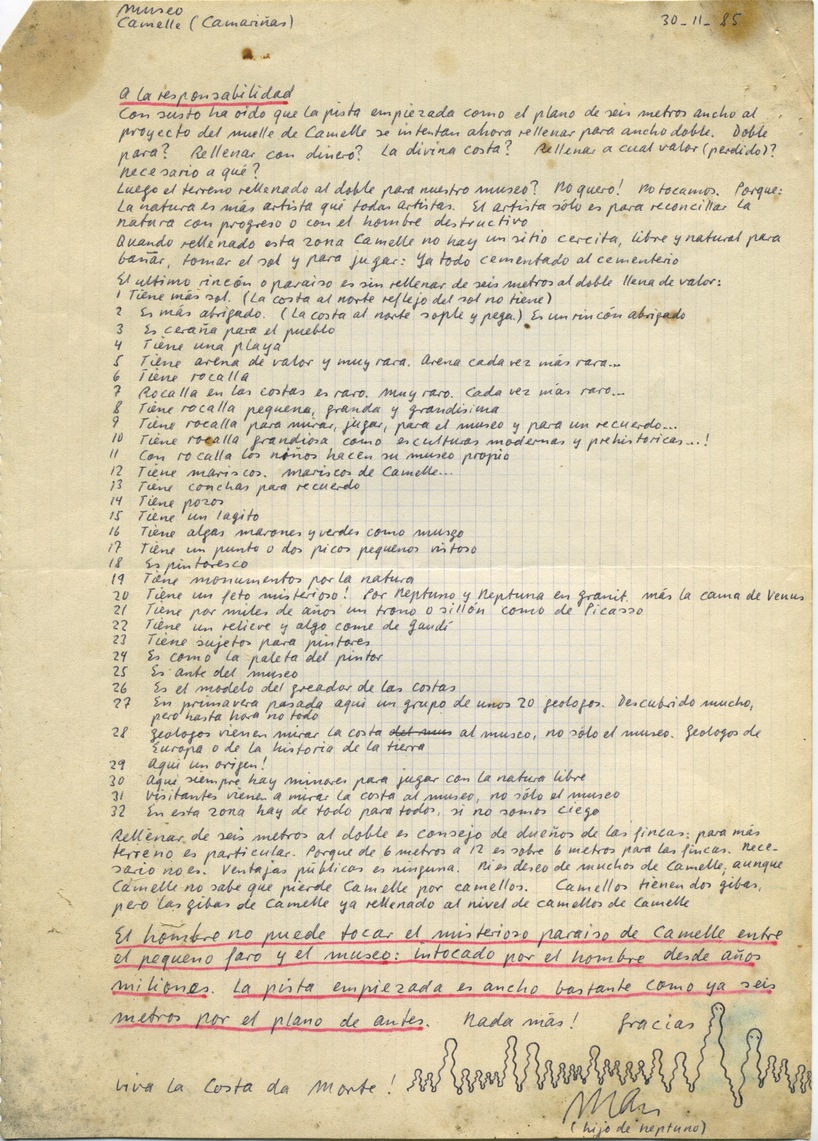 Museo
Camelle (Camariñas)
30-11-85
A la responsabilidad
Con susto ha oido que la pista empiezada como el plano de seis metros ancho al
proyecto del muelle de Camelle se intentan ahora rellenar para ancho doble. Doble
para? Rellenar con dinero? La divina costa? Rellenar a cual valor (perdido)?
Necesario a qué?
Luego el terreno rellenado al doble para nuestro museo? No quero! No tocamos. Porque:
La natura es más artista qué todas artistas. El artista sólo es para reconcillar la
natura con progreso o con el hombre destructivo
Quando rellenado esta zona Camelle no hay un sitio cercita, libre y natural para
bañar, tomar el sol y para jugar: Ya todo cementado al cementerio
El ultimo rincón o paraiso es sin rellenar de seis metros al doble llena de valor:
1 Tiene más sol. (La costa al norte reflejo del sol no tiene)
2 Es más abrigado. (La costa al norte sople y pega.) Es un rincón abrigado
3 Es ceraña para el pueblo
4 Tiene una playa
5 Tiene arena de valor y muy rara. Arena cada vez más rara...
6 Tiene rocalla
7 Rocalla en las costas es raro. Muy raro. Cada vez más raro...
8 Tiene rocalla pequena, granda y grandisima
9 Tiene rocalla para mirar, jugar, para el museo y para un recuerdo...
10 Tiene rocalla grandiosa como esculturas modernas y prehistoricas...!
11 Con rocalla los niños hacen su museo propio
12 Tiene mariscos. Mariscos de Camelle...
13 Tiene conchas para recuerdo
14 Tiene pozos
15 Tiene un lagito
16 Tiene algas marones y verdes como musgo
17 Tiene un punto o dos picos pequenos vistoso
18 Es pintoresco
19 Tiene monumentos por la natura
20 Tiene un feto misterioso! Por Neptuno y Neptuna en granit. más la cama de Venus
21 Tiene por miles de años un trono o sillón como de Picasso
22 Tiene un relieve y algo come de Gaudí
23 Tiene sujetos para pintores
24 Es como la paleta del pintor
25 Es ante del museo
26 Es el modelo del greador de las costas
27 En primavera pasada aqui un grupo de unos 20 geologos. Descubrido mucho,
pero hasta hora no todo
28 Geologos vienen mirar la costa al museo, no sólo el museo. Geologos de
Europa o de la historia de la tierra
29 Aquí un origen!
30 Aquí siempre hay minores para jugar con la natura libre
31 Visitantes vienen a mirar la costa al museo, no sólo el museo
32 En esta zona hay de todo para todos, si no somos ciego
Rellenar de seis metros al doble es consejo de dueños de las fincas: para más
terreno es particular. Porque de 6 metros a 12 es sobre 6 metros para las fincas. Nece-
sario no es. Ventajas públicas es ninguna. Ni es deseo de muchos de Camelle, aunque
Camelle no sabe que pierde Camelle por camellos. Camellos tienen dos gibas,
pero las gibas de Camelle ya rellenado al nivel de camellos de Camelle
El hombre no puede tocar el misterioso paraiso de Camelle entre
el pequeno faro y el museo: intocado por el hombre desde años
miliones. La pista empiezada es ancho bastante como ya seis
metros por el plano de antes. Nada más! Gracias
Viva la Costa da Morte!
Man
(hijo de neptuno)